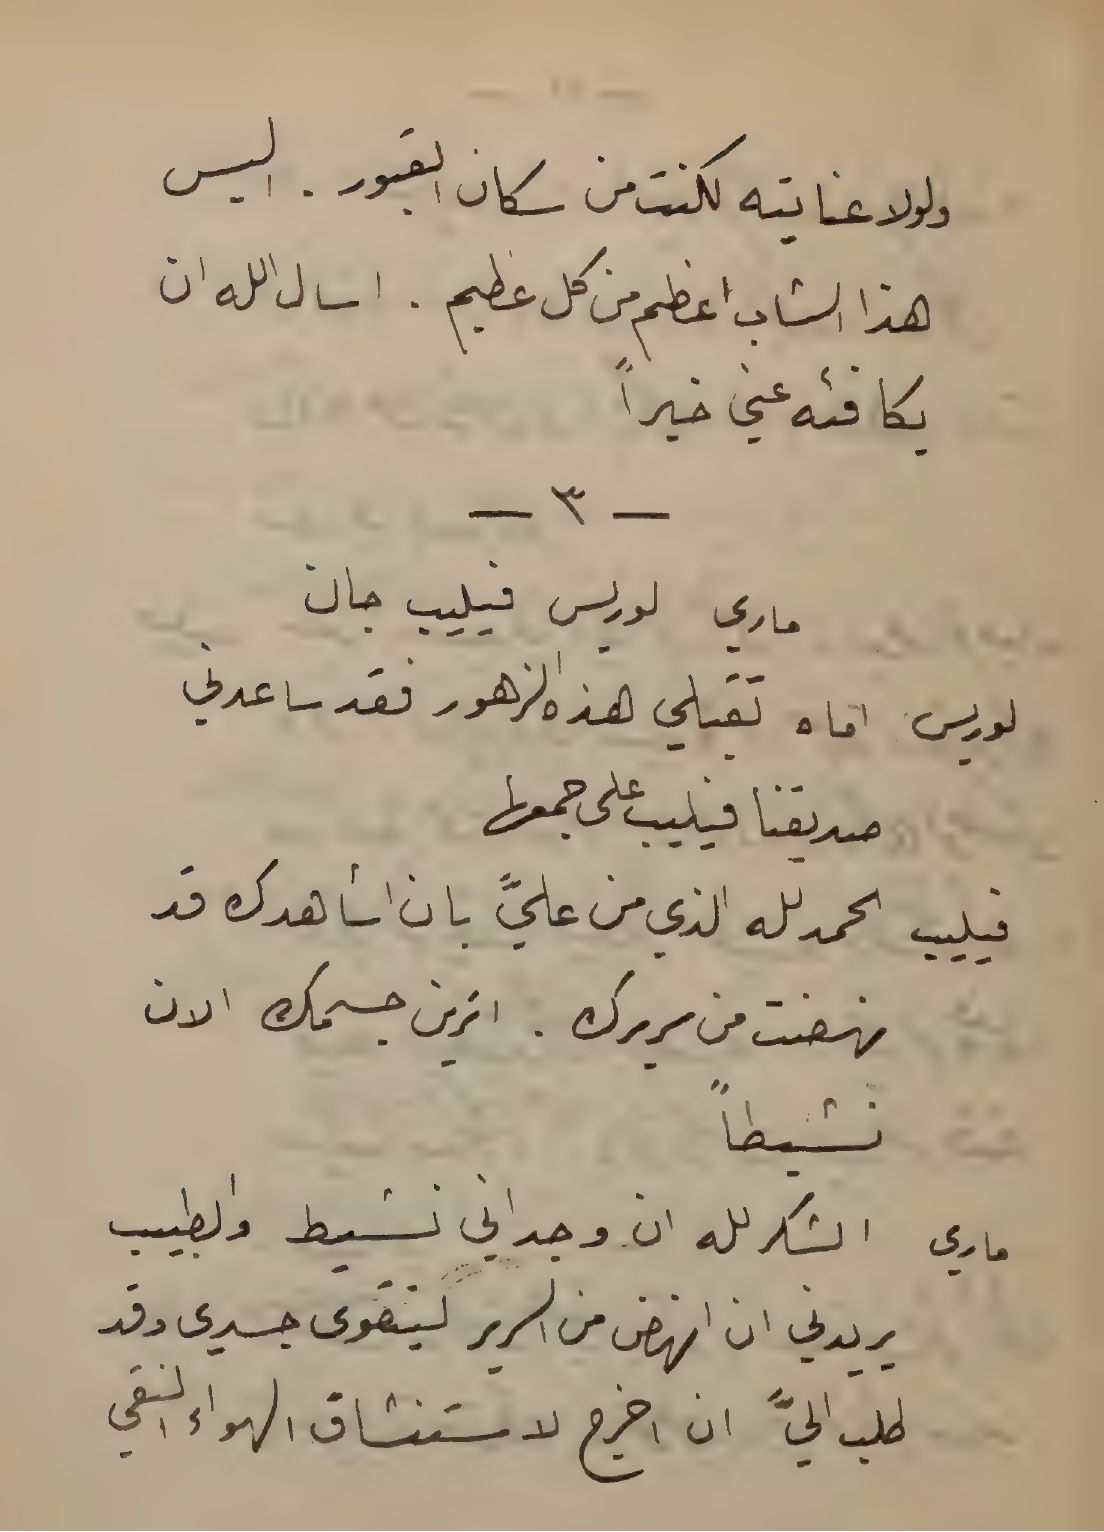 — ١١ —
ولولا عنايته لكنت من سكان القبور . اليس
هذا الشاب اعظم من كل عظيم . اسال الله ان
يكافئه عني خيراً
— ٣ —
ماري لوريس فيليب جان
لوريس اماه تقبلي هذه الزهور فقد ساعدني
صديقنا فيليب على جمعها
فيليب الحمد لله الذي من عليَّ بان اشاهدك قد
نهضت من سريرك . اترين جسمك الان
نشيطاً
ماري الشكر لله ان وجداني نشيط والطبيب
يريدني ان انهض من السرير ليتقوى جسدي وقد
طلب اليَّ ان اخرج لاستنشاق الهواء النقي